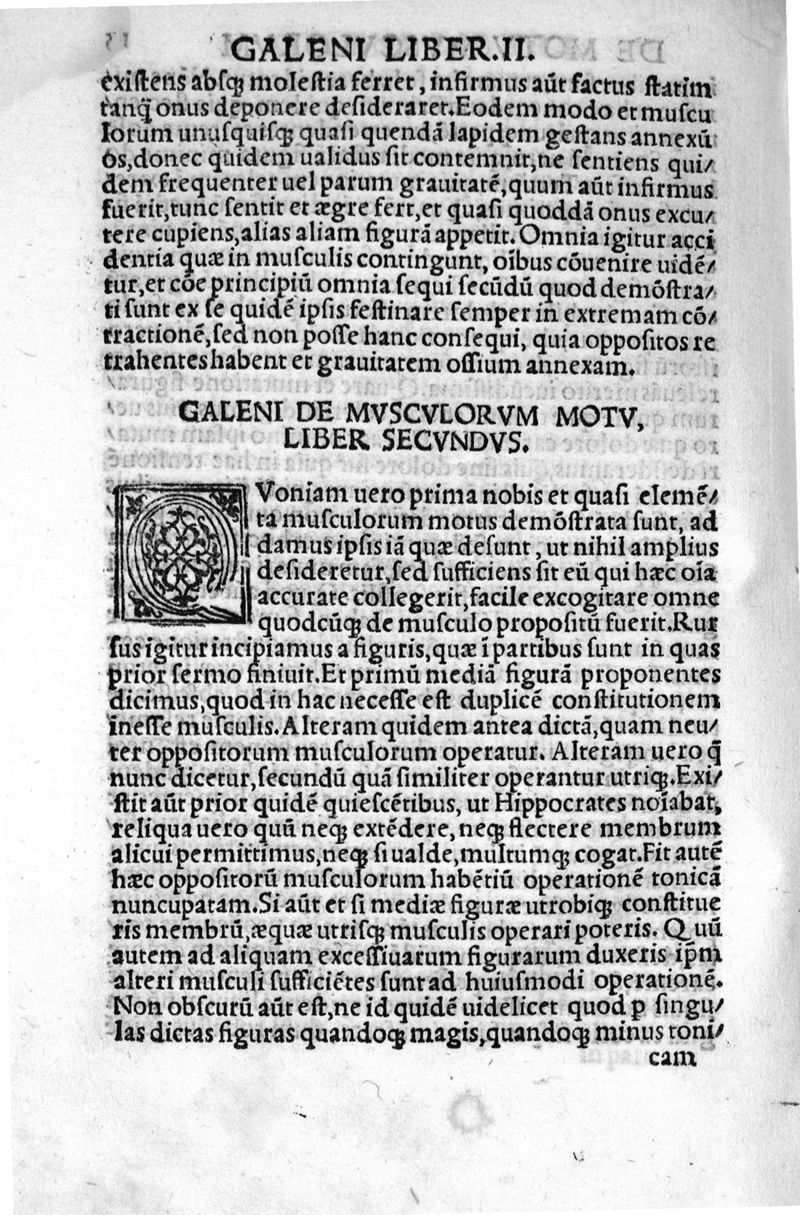 GALENI LIBER.II.
existens absqꝫ molestia ferret, infirmus aūt factus statim
tanq̄ onus deponere desideraret.Eodem modo et muscu
lorum unusquisqꝫ quasi quendā lapidem gestans annexū
os,donec quidem ualidus sit contemnit,ne sentiens qui/
dem frequenter uel parum grauitatē,quum aūt infirmus
fuerit,tunc sentit et ægre fert,et quasi quoddā onus excu/
tere cupiens,alias aliam figurā appetit.Omnia igitur acci
dentia quæ in musculis contingunt, oībus cōuenire uidē/
tur,et cōe principiū omnia sequi secūdū quod demōstra/
ti sunt ex se quidē ipsis festinare semper in extremam cō/
tractionē,sed non posse hanc consequi, quia oppositos re
trahentes habent et grauitatem ossium annexam.
GALENI DE MVSCVLORVM MOTV,
LIBER SECVNDVS.
QVoniam uero prima nobis et quasi elemē/
ta musculorum motus demōstrata sunt, ad
damus ipsis iā quæ desunt, ut nihil amplius
desideretur,sed sufficiens sit eū qui hæc oīa
accurate collegerit,facile excogitare omne
quodcūqꝫ de musculo propositū fuerit.Rur
sus igitur incipiamus a figuris,quæ ī partibus sunt in quas
prior sermo finiuit.Et primū mediā figurā proponentes
dicimus,quod in hac necesse est duplicē constitutionem
inesse musculis.Alteram quidem antea dictā,quam neu/
ter oppositorum musculorum operatur. Alteram uero q̄
nunc dicetur,secundū quā similiter operantur utriqꝫ.Exi/
stit aūt prior quidē quiescētibus, ut Hippocrates noīabat,
reliqua uero quū neqꝫ extēdere,neqꝫ flectere membrum
alicui permittimus,neqꝫ si ualde,multumqꝫ cogat.Fit autē
hæc oppositorū musculorum habētiū operationē tonicā
nuncupatam.Si aūt et si mediæ figuræ utrobiqꝫ constitue
ris membrū,æquæ utrisqꝫ musculis operari poteris. Quū
autem ad aliquam excessiuarum figurarum duxeris ip̄m
alteri musculi sufficiētes sunt ad huiusmodi operationē.
Non obscurū aūt est,ne id quidē uidelicet quod ꝑ singu/
las dictas figuras quandoqꝫ magis,quandoqꝫ minus toni/
cam